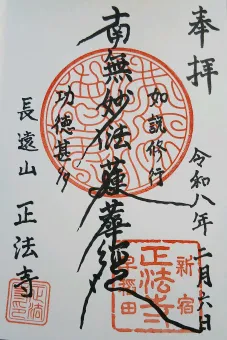 奉拝
令和八年二月六日
如説修行
南無妙法蓮華経
功徳甚多
長遠山
正法寺
新宿
正法寺
早稲田